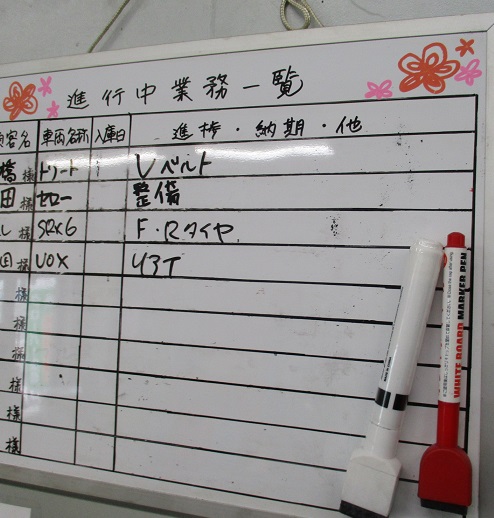 進行中業務一覧
客名 車両名称 入庫日 進捗・納期・他
橋様 トリート Vベルト
田様 セロー 整備
様 SRX6 F・Rタイヤ
様 VOX
様
様
様
様
様
様
WHITE BOARD MARKER PEN